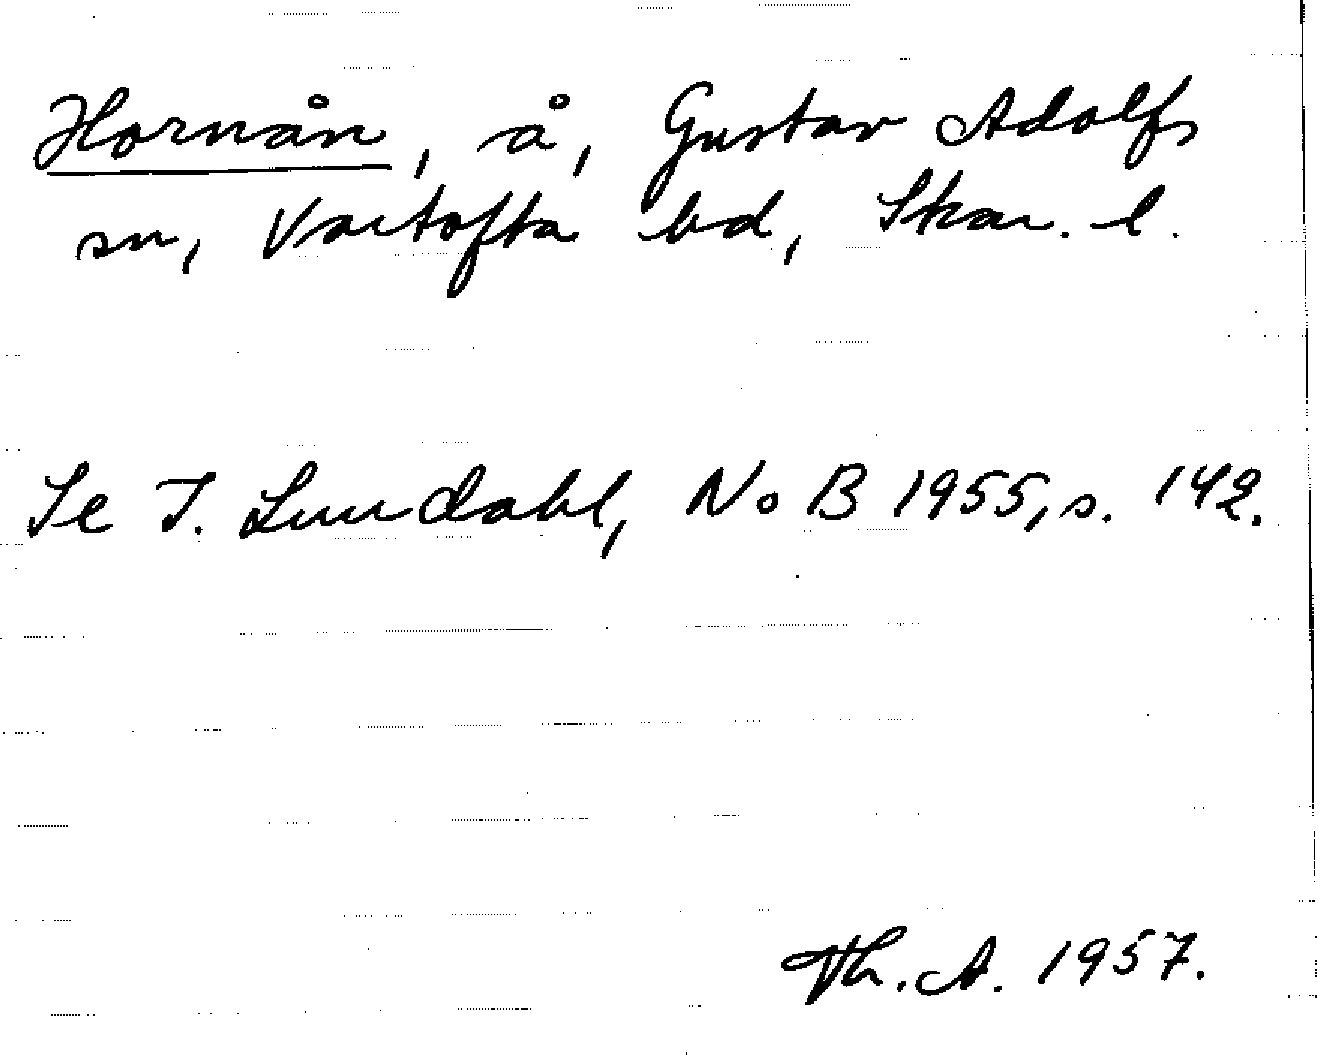 Hornån, å, Gustav Adolfs
sn, Vartofta hd, Skar. l.
Se I. Lundahl, NoB 1955, s. 142.
Th. A. 1957.